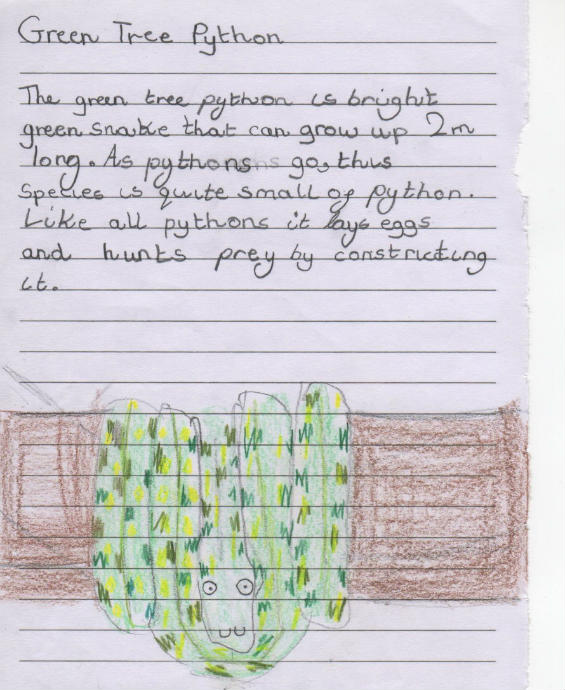 Green Tree Python
The green tree python is bright
green snake that can grow up 2m
long. As pythons go, this
Species is quite small of python.
Like all pythons it lays eggs
and hunts prey by constructing
it.